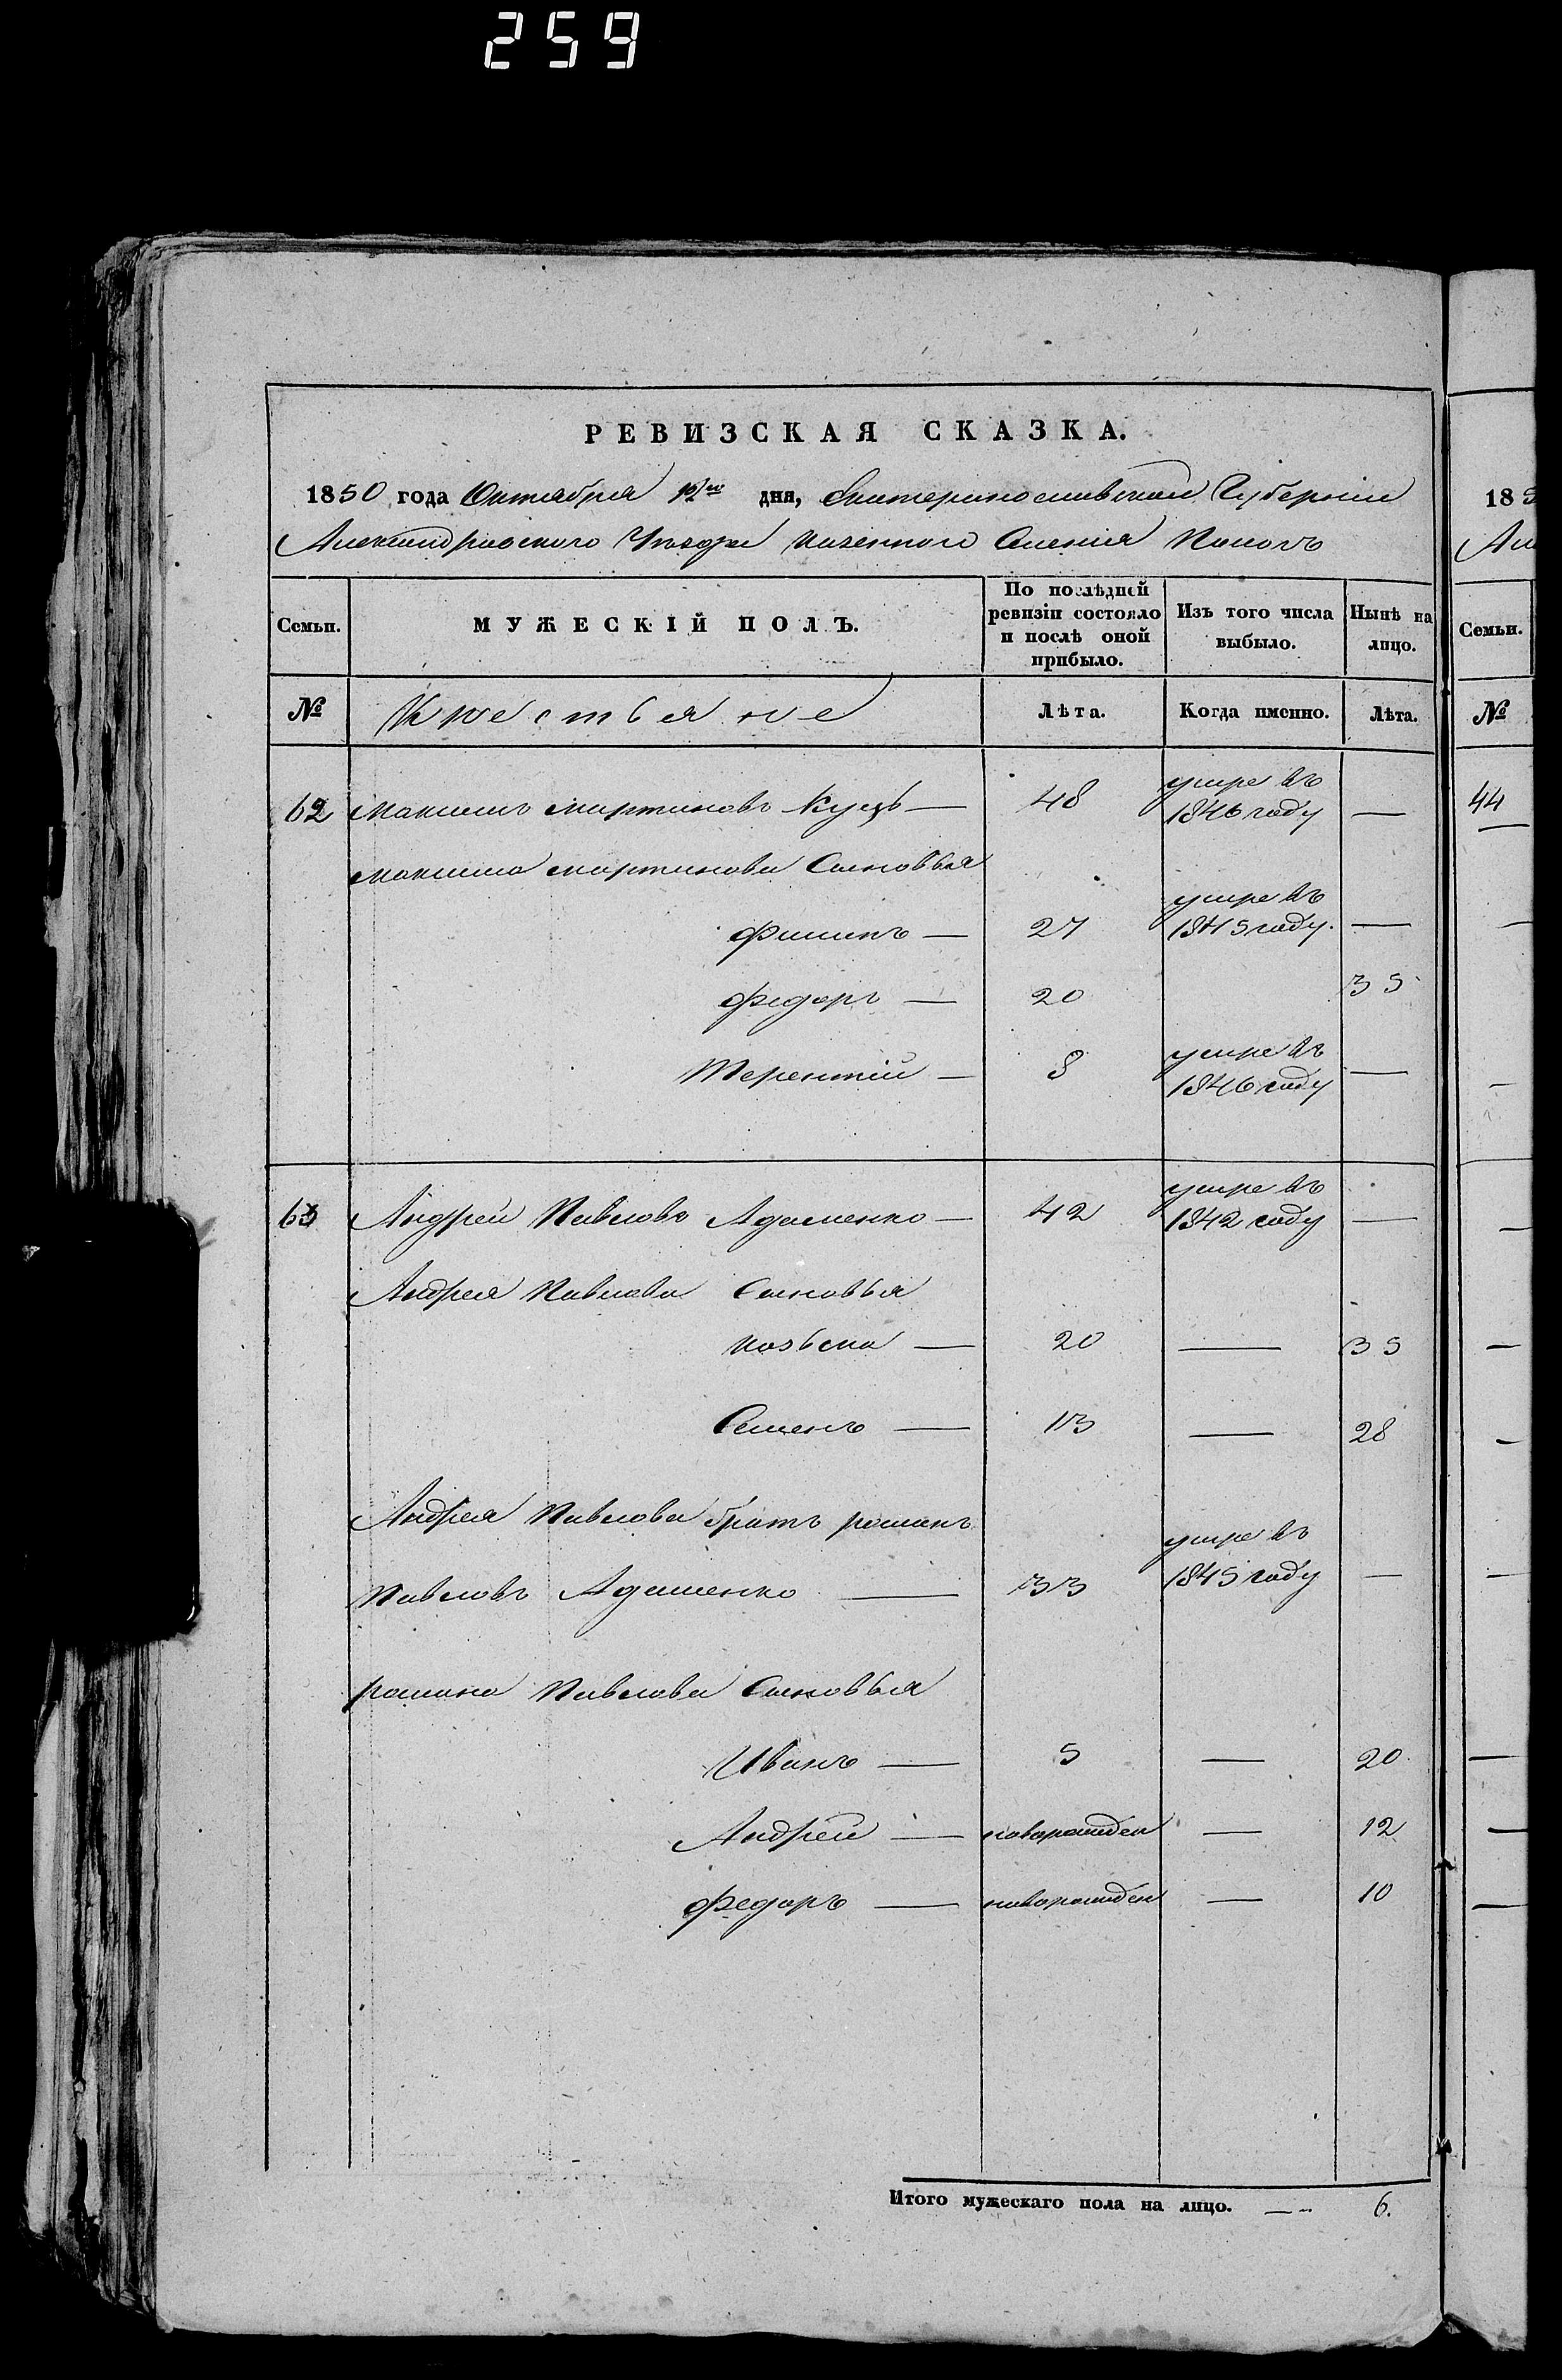 259
РЕВИЗСКАЯ СКАЗКА.
1850 года Октября 12го дня, Екатеринославской Губернии
Александровского Уѣзда Казенного Селения Конопъ
Семьи. МУЖЕСКІЙ ПОЛЪ. По послѣдней ревизіи состояло и послѣ оной прибыло. Изъ того числа выбыло. Нынѣ на лицо.
№ Крестьяне Лѣта. Когда именно. Лѣта.
62 Максимъ Мартиновъ Куцъ — 48 умре въ 1846 году —
Максима Мартинова Сыновья
Филипъ — 27 умре въ 1845 году. —
Федоръ — 20 35
Терентій — 8 умре въ 1846 году —
63 Андрей Павловъ Адаменко — 42 умре въ 1842 году —
Андрея Павлова Сыновья
Козьма — 20 — 35
Семенъ — 13 — 28
Андрея Павлова братъ романъ
Павловъ Адаменко — 33 умре въ 1845 году —
романа Павлова Сыновья
Иванъ — 5 — 20
Андрей — новорожден — 12
Федоръ — новорожден — 10
Итого мужескаго пола на лицо. — 6.
185
Ал
Семьи.
№
44